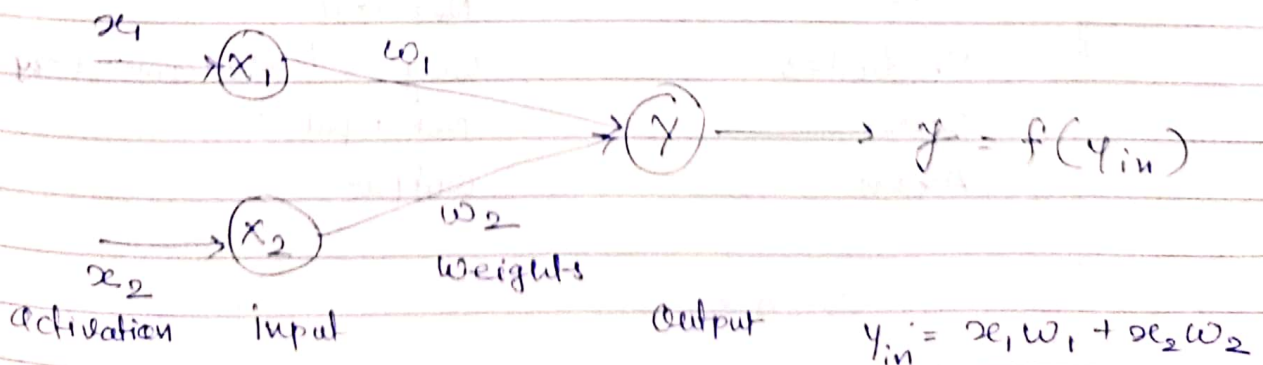 x₁
X₁ w₁
Y → y = f(yin)
X₂ w₂
x₂ Weights
activation input Output yin = x₁w₁ + x₂w₂